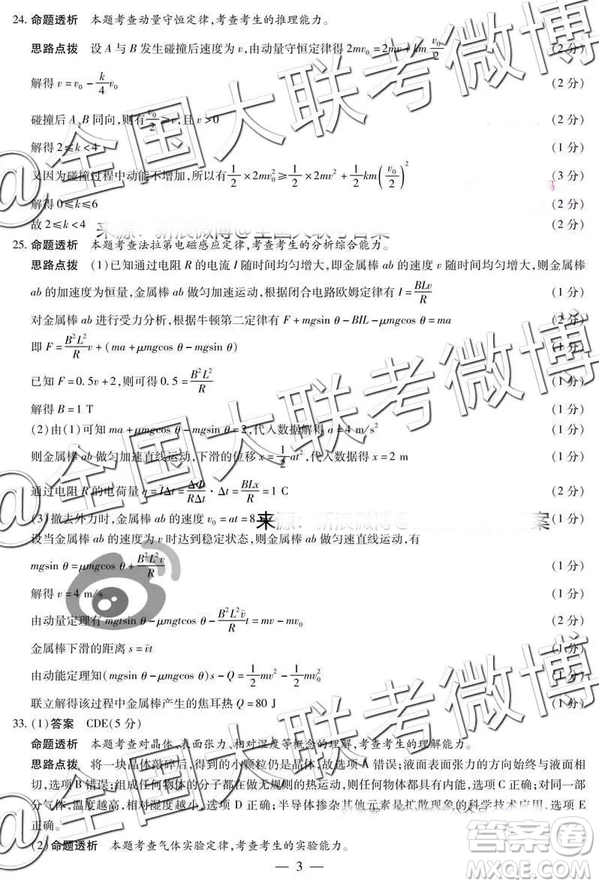 24. 命题透析 本题考查动量守恒定律,考查考生的推理能力。
思路点拨 设 A 与 B 发生碰撞后速度为 v,由动量守恒定律得 2mv₀ = 2mv + km v₀/2 (2 分)
解得 v = v₀ − k/4 v₀ (2 分)
碰撞后 A、B 同向,则有 v₀/2 > v,且 v > 0 (2 分)
解得 2 < k < 4 (1 分)
又因为碰撞过程中动能不增加,所以有 1/2 × 2mv₀² ≥ 1/2 × 2mv² + 1/2 km(v₀/2)² (3 分)
解得 0 ≤ k ≤ 6 (1 分)
故 2 < k < 4 (1 分)
来源:新浪微博@全国大联考答案
25. 命题透析 本题考查法拉第电磁感应定律,考查考生的分析综合能力。
思路点拨 (1)已知通过电阻 R 的电流 I 随时间均匀增大,即金属棒 ab 的速度 v 随时间均匀增大,则金属棒
ab 的加速度为恒量,金属棒 ab 做匀加速运动,根据闭合电路欧姆定律有 I = BLv/R (1 分)
对金属棒 ab 进行受力分析,根据牛顿第二定律有 F + mgsin θ − BIL − μmgcos θ = ma (2 分)
即 F = B²L²/R v + (ma + μmgcos θ − mgsin θ) (1 分)
已知 F = 0.5v + 2,则可得 0.5 = B²L²/R (1 分)
解得 B = 1 T (1 分)
(2)由(1)可知 ma + μmgcos θ − mgsin θ = 2,代入数据解得 a = 4 m/s² (2 分)
则金属棒 ab 做匀加速直线运动,下滑的位移 x = 1/2 at²,代入数据求得 x = 2 m (1 分)
通过电阻 R 的电荷量 q = IΔt = ΔΦ/RΔt · Δt = BLx/R = 1 C (2 分)
(3)撤去外力时,金属棒 ab 的速度 v₀ = at = 8 (1 分)
来源:新浪微博@
案
设当金属棒 ab 的速度为 v 时达到稳定状态,则金属棒 ab 做匀速直线运动,有
mgsin θ = μmgcos θ + B²L²v/R (1 分)
解得 v = 4 m/s (1 分)
由动量定理有 mgtsin θ − μmgtcos θ − B²L²v̄/R t = mv − mv₀ (2 分)
金属棒下滑的距离 s = v̄t (1 分)
由动能定理知(mgsin θ − μmgcos θ)s − Q = 1/2 mv² − 1/2 mv₀² (2 分)
联立解得该过程中金属棒产生的焦耳热 Q = 80 J (1 分)
33. (1)答案 CDE(5 分)
命题透析 本题考查对晶体、表面张力、相对湿度等概念的理解,考查考生的理解能力。
思路点拨 将一块晶体敲碎后,得到的小颗粒仍是晶体,故选项 A 错误;液面表面张力的方向始终与液面相
切,选项 B 错误;组成任何物体的分子都在做无规则的热运动,则任何物体都具有内能,选项 C 正确;对同一部
分气体,温度越高,相对湿度越小,选项 D 正确;半导体掺杂其实是扩散现象的科学技术应用,选项 E 正确。
(2)命题透析 本题考查气体实验定律,考查考生的实验能力。
— 3 —
@全国大联考微博
@全国大联考微博
@全国大联考微博
答案圈
MXQE.COM